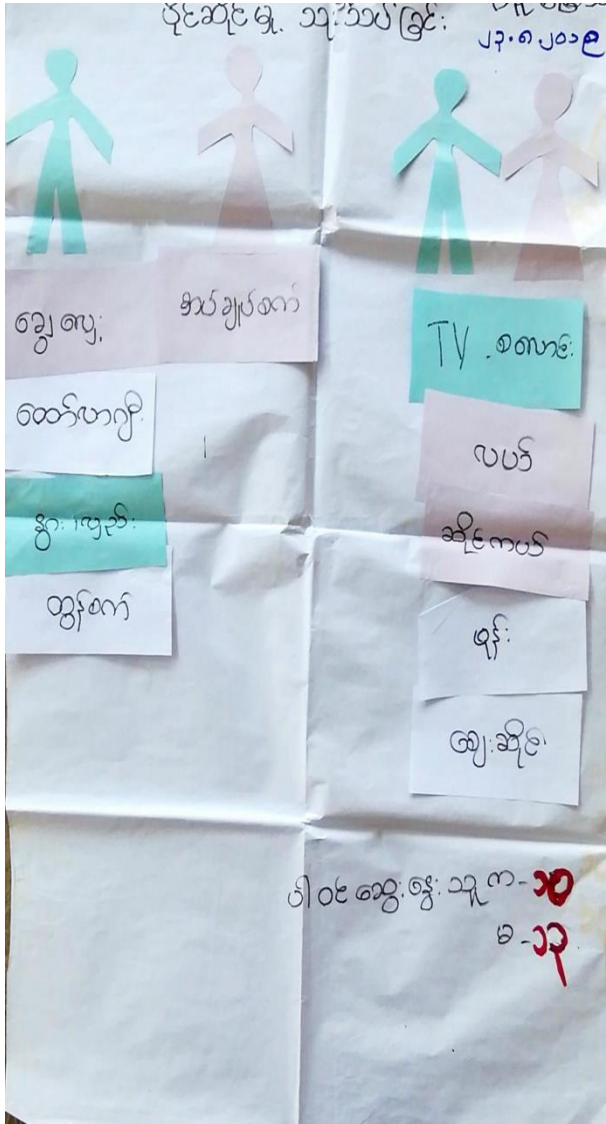 ပိုင်ဆိုင်မှု သုံးသပ်ခြင်း
၂၃.၈.၂၀၁၉
ချွေလှေ့
အပ်ချုပ်စက်
ထော်လာဂျီ
နွား၊လှည်း
ထွန်စက်
TV . စလောင်း
လယ်
ဆိုင်ကယ်
ဖုန်း
ဈေးဆိုင်
ပါဝင်ဆွေးနွေးသူ က - ၁၇
မ - ၁၃